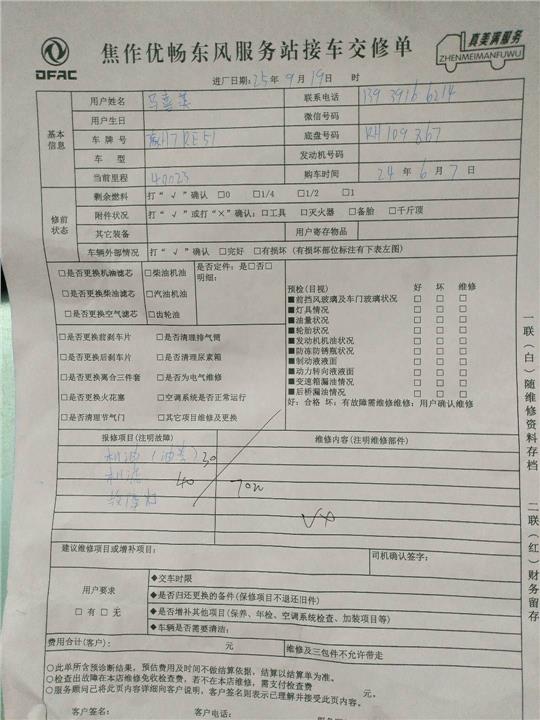 DFAC
焦作优畅东风服务站接车交修单
真美满服务
ZHENMEIMANFUWU
进厂日期:25年9月19日 时
基本信息
用户姓名 联系电话
用户生日 微信号码
车牌号 底盘号码 RH109867
车型 发动机号码
当前里程 40023 购车时间 24年6月7日
修前状态
剩余燃料 打“√”确认 □0 □1/4 □1/2 □1
附件状况 打“√”或打“×”确认:□工具 □灭火器 □备胎 □千斤顶
其它装备 用户寄存物品
车辆外部情况 打“√”确认 □完好 □有损坏(有损坏部位标注有下表左图)
□是否更换机油滤芯 □柴油机油 是否定件:是□否□
明细:
□是否更换柴油滤芯 □汽油机油
□是否更换空气滤芯 □齿轮油
预检(目视) 好 坏 维修
■前挡风玻璃及车门玻璃状况 □ □ □
■灯具情况 □ □ □
■油量状况 □ □ □
■轮胎状况 □ □ □
■发动机机油状况 □ □ □
■防冻防锈瓶状况 □ □ □
■制动液液面 □ □ □
■动力转向液液面 □ □ □
■变速箱漏油情况 □ □ □
■后桥漏油情况 □ □ □
好:合格 坏:有故障需维修维修:用户确认维修
□是否更换前刹车片 □是否清理排气筒
□是否更换后刹车片 □是否清理尿素箱
□是否更换离合三件套 □是否为电气维修
□是否更换火花塞 □空调系统是否正常运行
□是否清理节气门 □其它项目维修及更换
报修项目(注明故障) 维修内容(注明维修部件)
机油 30
机滤 40
故障灯
建议维修项目或增补项目: 司机确认签字:
用户要求
□有□无
◆交车时限
◆是否归还更换的备件(保修项目不退还旧件)
◆是否增补其他项目(保养、年检、空调系统检查、加装项目等)
◆车辆是否需要清洁:
费用合计(客户): 元 维修及三包件不允许带走
○此单所含预诊断结果,预估费用及时间不做结算依据,结算以结算单为准。
○检查出故障在本店维修免收检查费,若不在本店维修,需支付检查费 元。
○服务顾问已将此页内容详细向客户说明,客户签名则表示已理解并接受此页内容。
客户签名: 客户电话:
一联(白)随维修资料存档 二联(红)财务留存